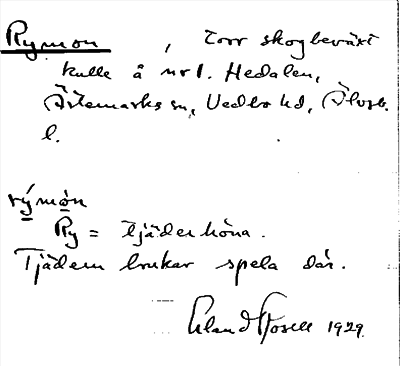 Rymon, Torr skogbeväxt
kulle å nr 1. Hedalen,
Ärtemarks sn, Vedbo hd, Älvsb.
l.
rýmòn
Ry = tjäderhöna.
Tjädern brukar spela där.
Erland Rosell 1929.